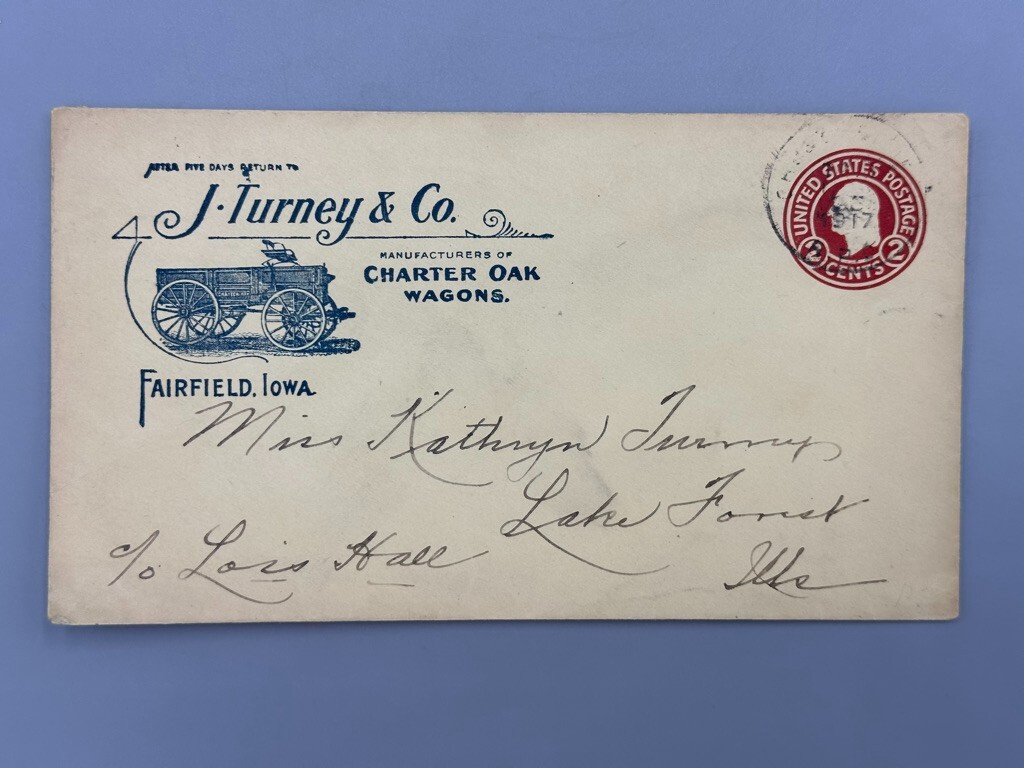 AFTER FIVE DAYS RETURN TO
J. Turney & Co.
MANUFACTURERS OF
CHARTER OAK
WAGONS.
FAIRFIELD, IOWA
UNITED STATES POSTAGE
2 CENTS 2
1917
Miss Kathryn Turney
Lake Forest
c/o Lois Hall
Ills